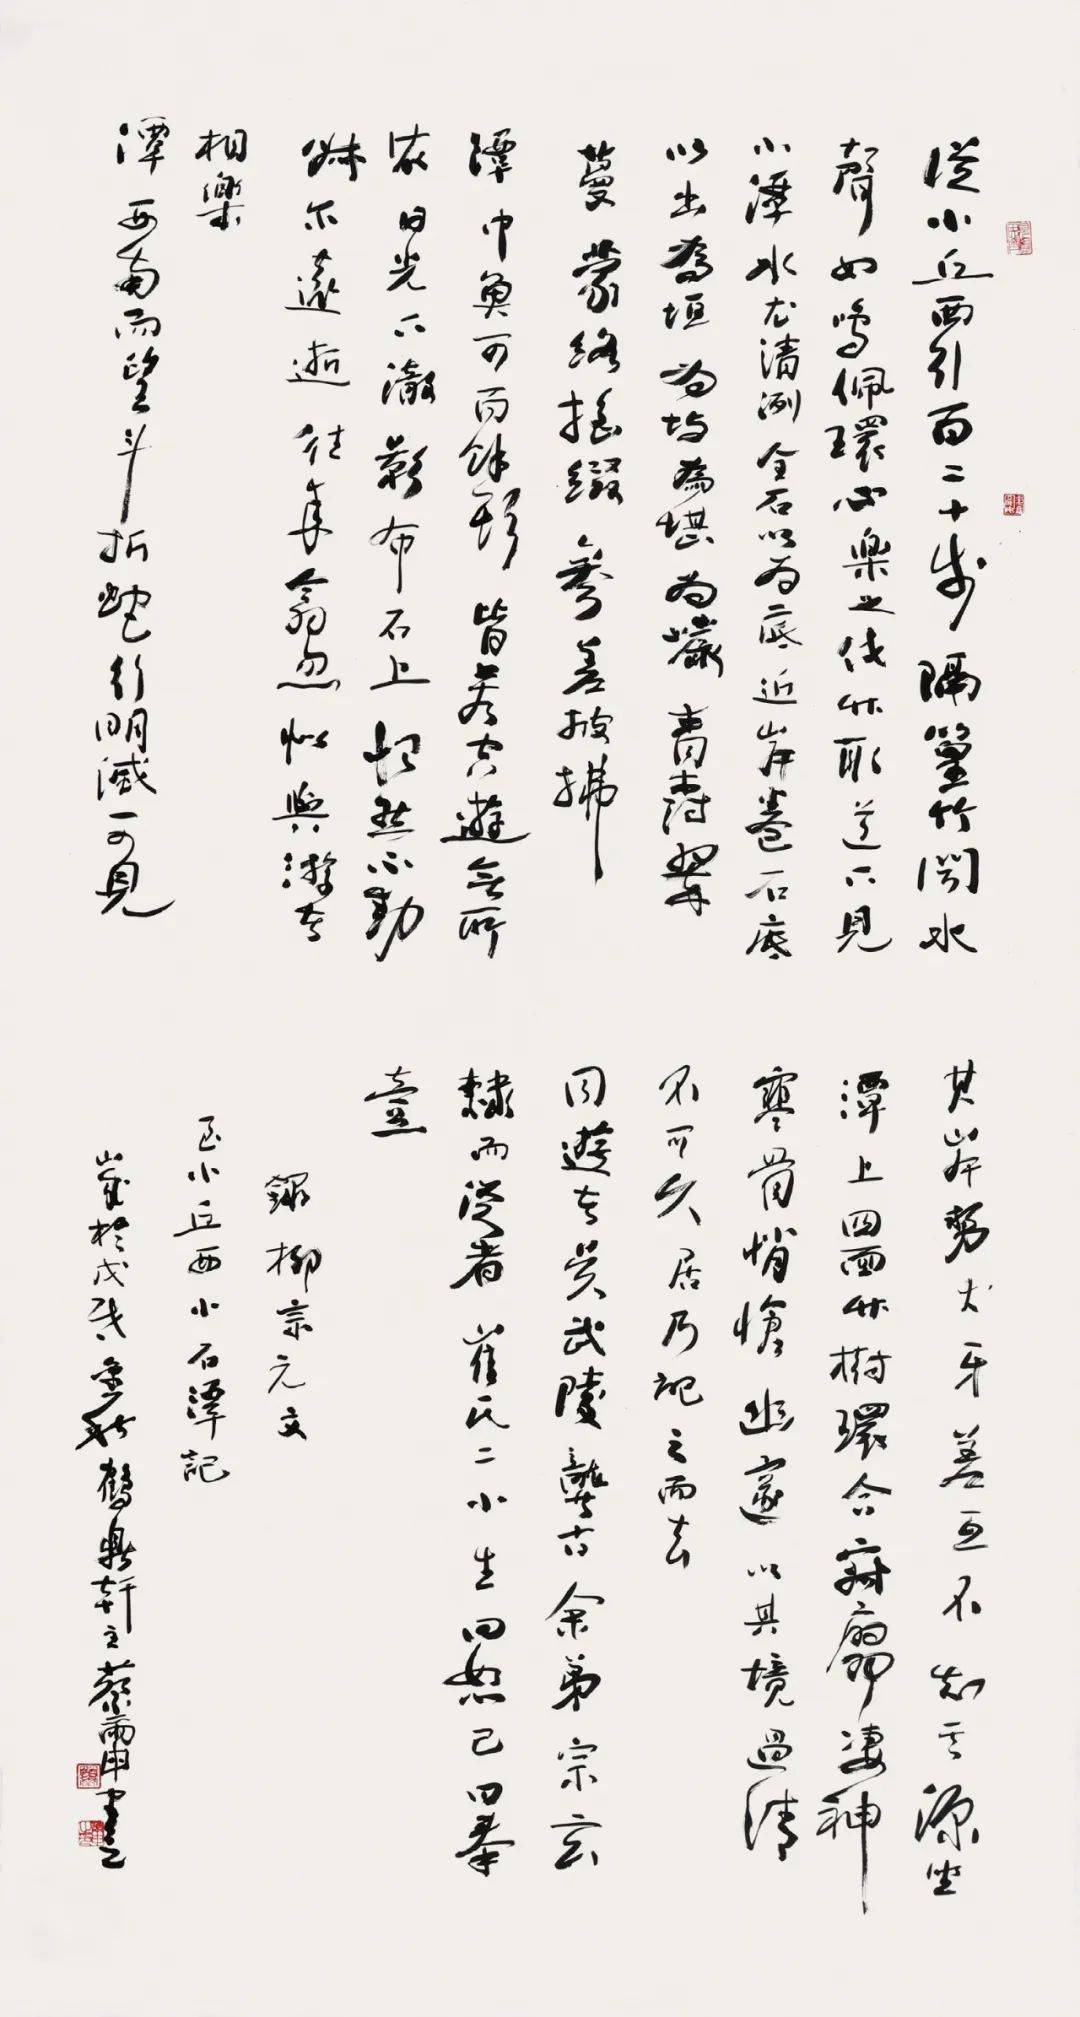 從小丘西行百二十步隔篁竹聞水
聲如鳴佩環心樂之伐竹取道下見
小潭水尤清冽全石以為底近岸卷石底
以出為坻為嶼為堪為巖青樹翠
蔓蒙絡搖綴參差披拂
潭中魚可百餘頭皆若空遊無所
依日光下澈影布石上怡然不動
俶尔遠逝往來翕忽似與游者
相樂
潭西南而望斗折蛇行明滅可見
其岸勢犬牙差互不知其源坐
潭上四面竹樹環合寂寥凄神
寒骨悄愴幽邃以其境過清
不可久居乃記之而去
同遊者吳武陵龔古余弟宗玄
隸而從者崔氏二小生曰恕己曰奉
壹
錄柳宗元文
至小丘西小石潭記
歲於戊戌金秋鶴鼎軒主蔡雨書之